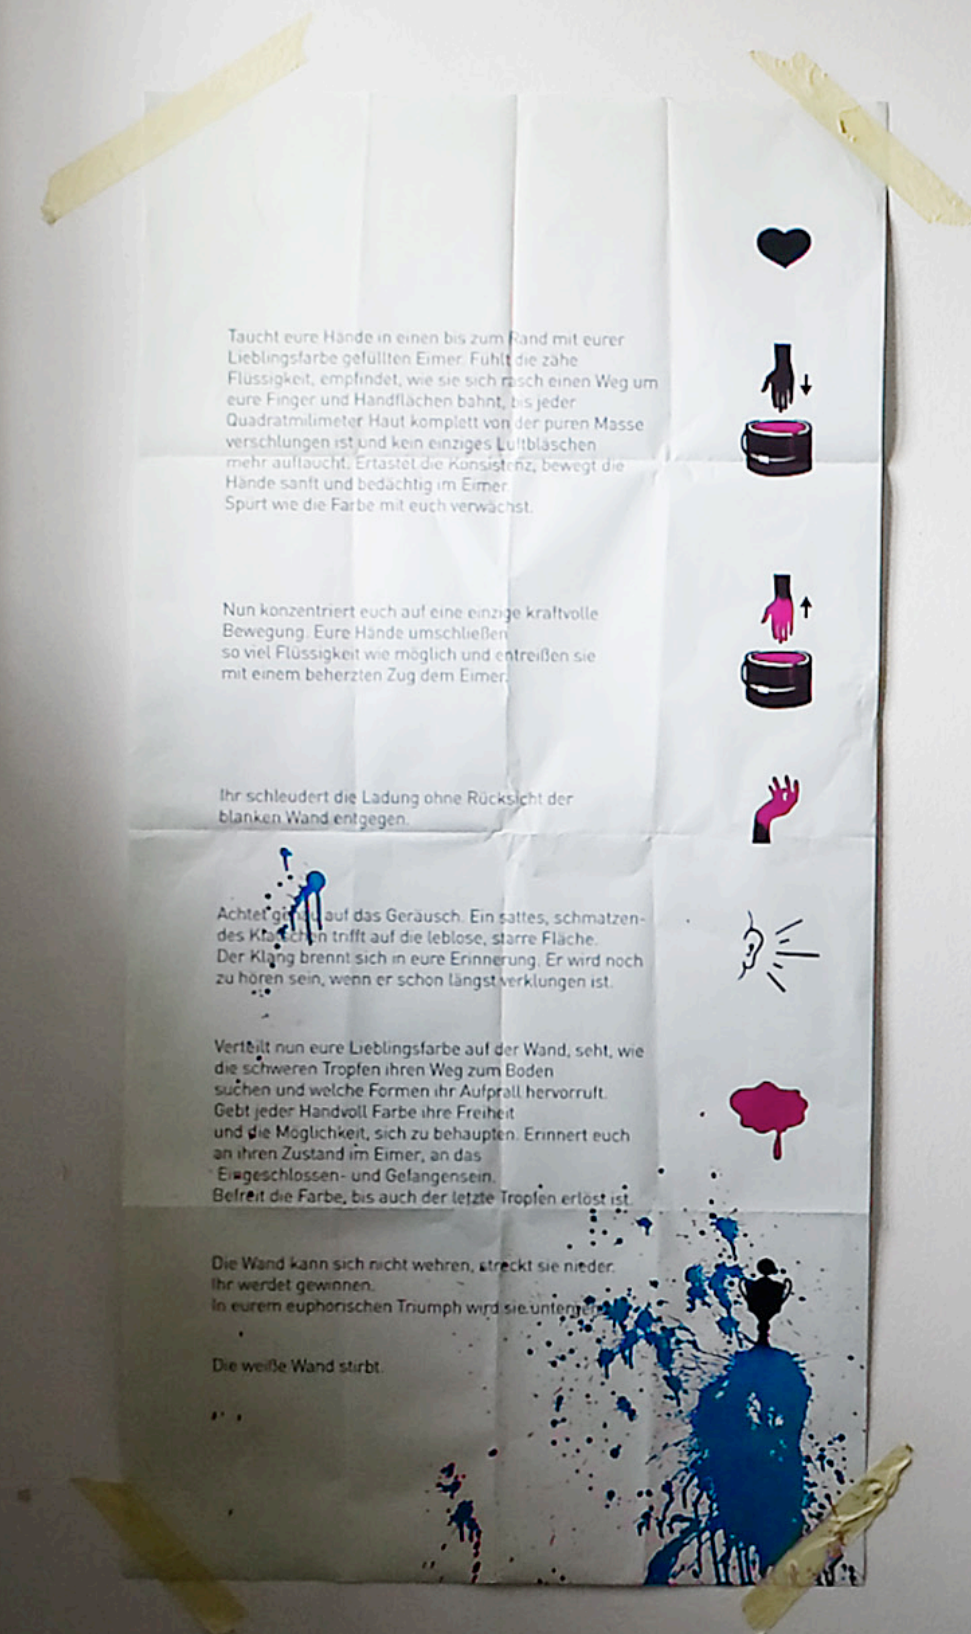 Taucht eure Hände in einen bis zum Rand mit eurer
Lieblingsfarbe gefüllten Eimer. Fühlt die zähe
Flüssigkeit, empfindet, wie sie sich rasch einen Weg um
eure Finger und Handflächen bahnt, bis jeder
Quadratmilimeter Haut komplett von der puren Masse
verschlungen ist und kein einziges Luftbläschen
mehr auftaucht. Ertastet die Konsistenz, bewegt die
Hände sanft und bedächtig im Eimer.
Spürt wie die Farbe mit euch verwächst.
Nun konzentriert euch auf eine einzige kraftvolle
Bewegung. Eure Hände umschließen
so viel Flüssigkeit wie möglich und entreißen sie
mit einem beherzten Zug dem Eimer.
Ihr schleudert die Ladung ohne Rücksicht der
blanken Wand entgegen.
Achtet genau auf das Geräusch. Ein sattes, schmatzen-
des Klatschen trifft auf die leblose, starre Fläche.
Der Klang brennt sich in eure Erinnerung. Er wird noch
zu hören sein, wenn er schon längst verklungen ist.
Verteilt nun eure Lieblingsfarbe auf der Wand, seht, wie
die schweren Tropfen ihren Weg zum Boden
suchen und welche Formen ihr Aufprall hervorruft.
Gebt jeder Handvoll Farbe ihre Freiheit
und die Möglichkeit, sich zu behaupten. Erinnert euch
an ihren Zustand im Eimer, an das
Eingeschlossen- und Gefangensein.
Befreit die Farbe, bis auch der letzte Tropfen erlöst ist.
Die Wand kann sich nicht wehren, streckt sie nieder.
Ihr werdet gewinnen.
In eurem euphorischen Triumph wird sie untergehen.
Die weiße Wand stirbt.